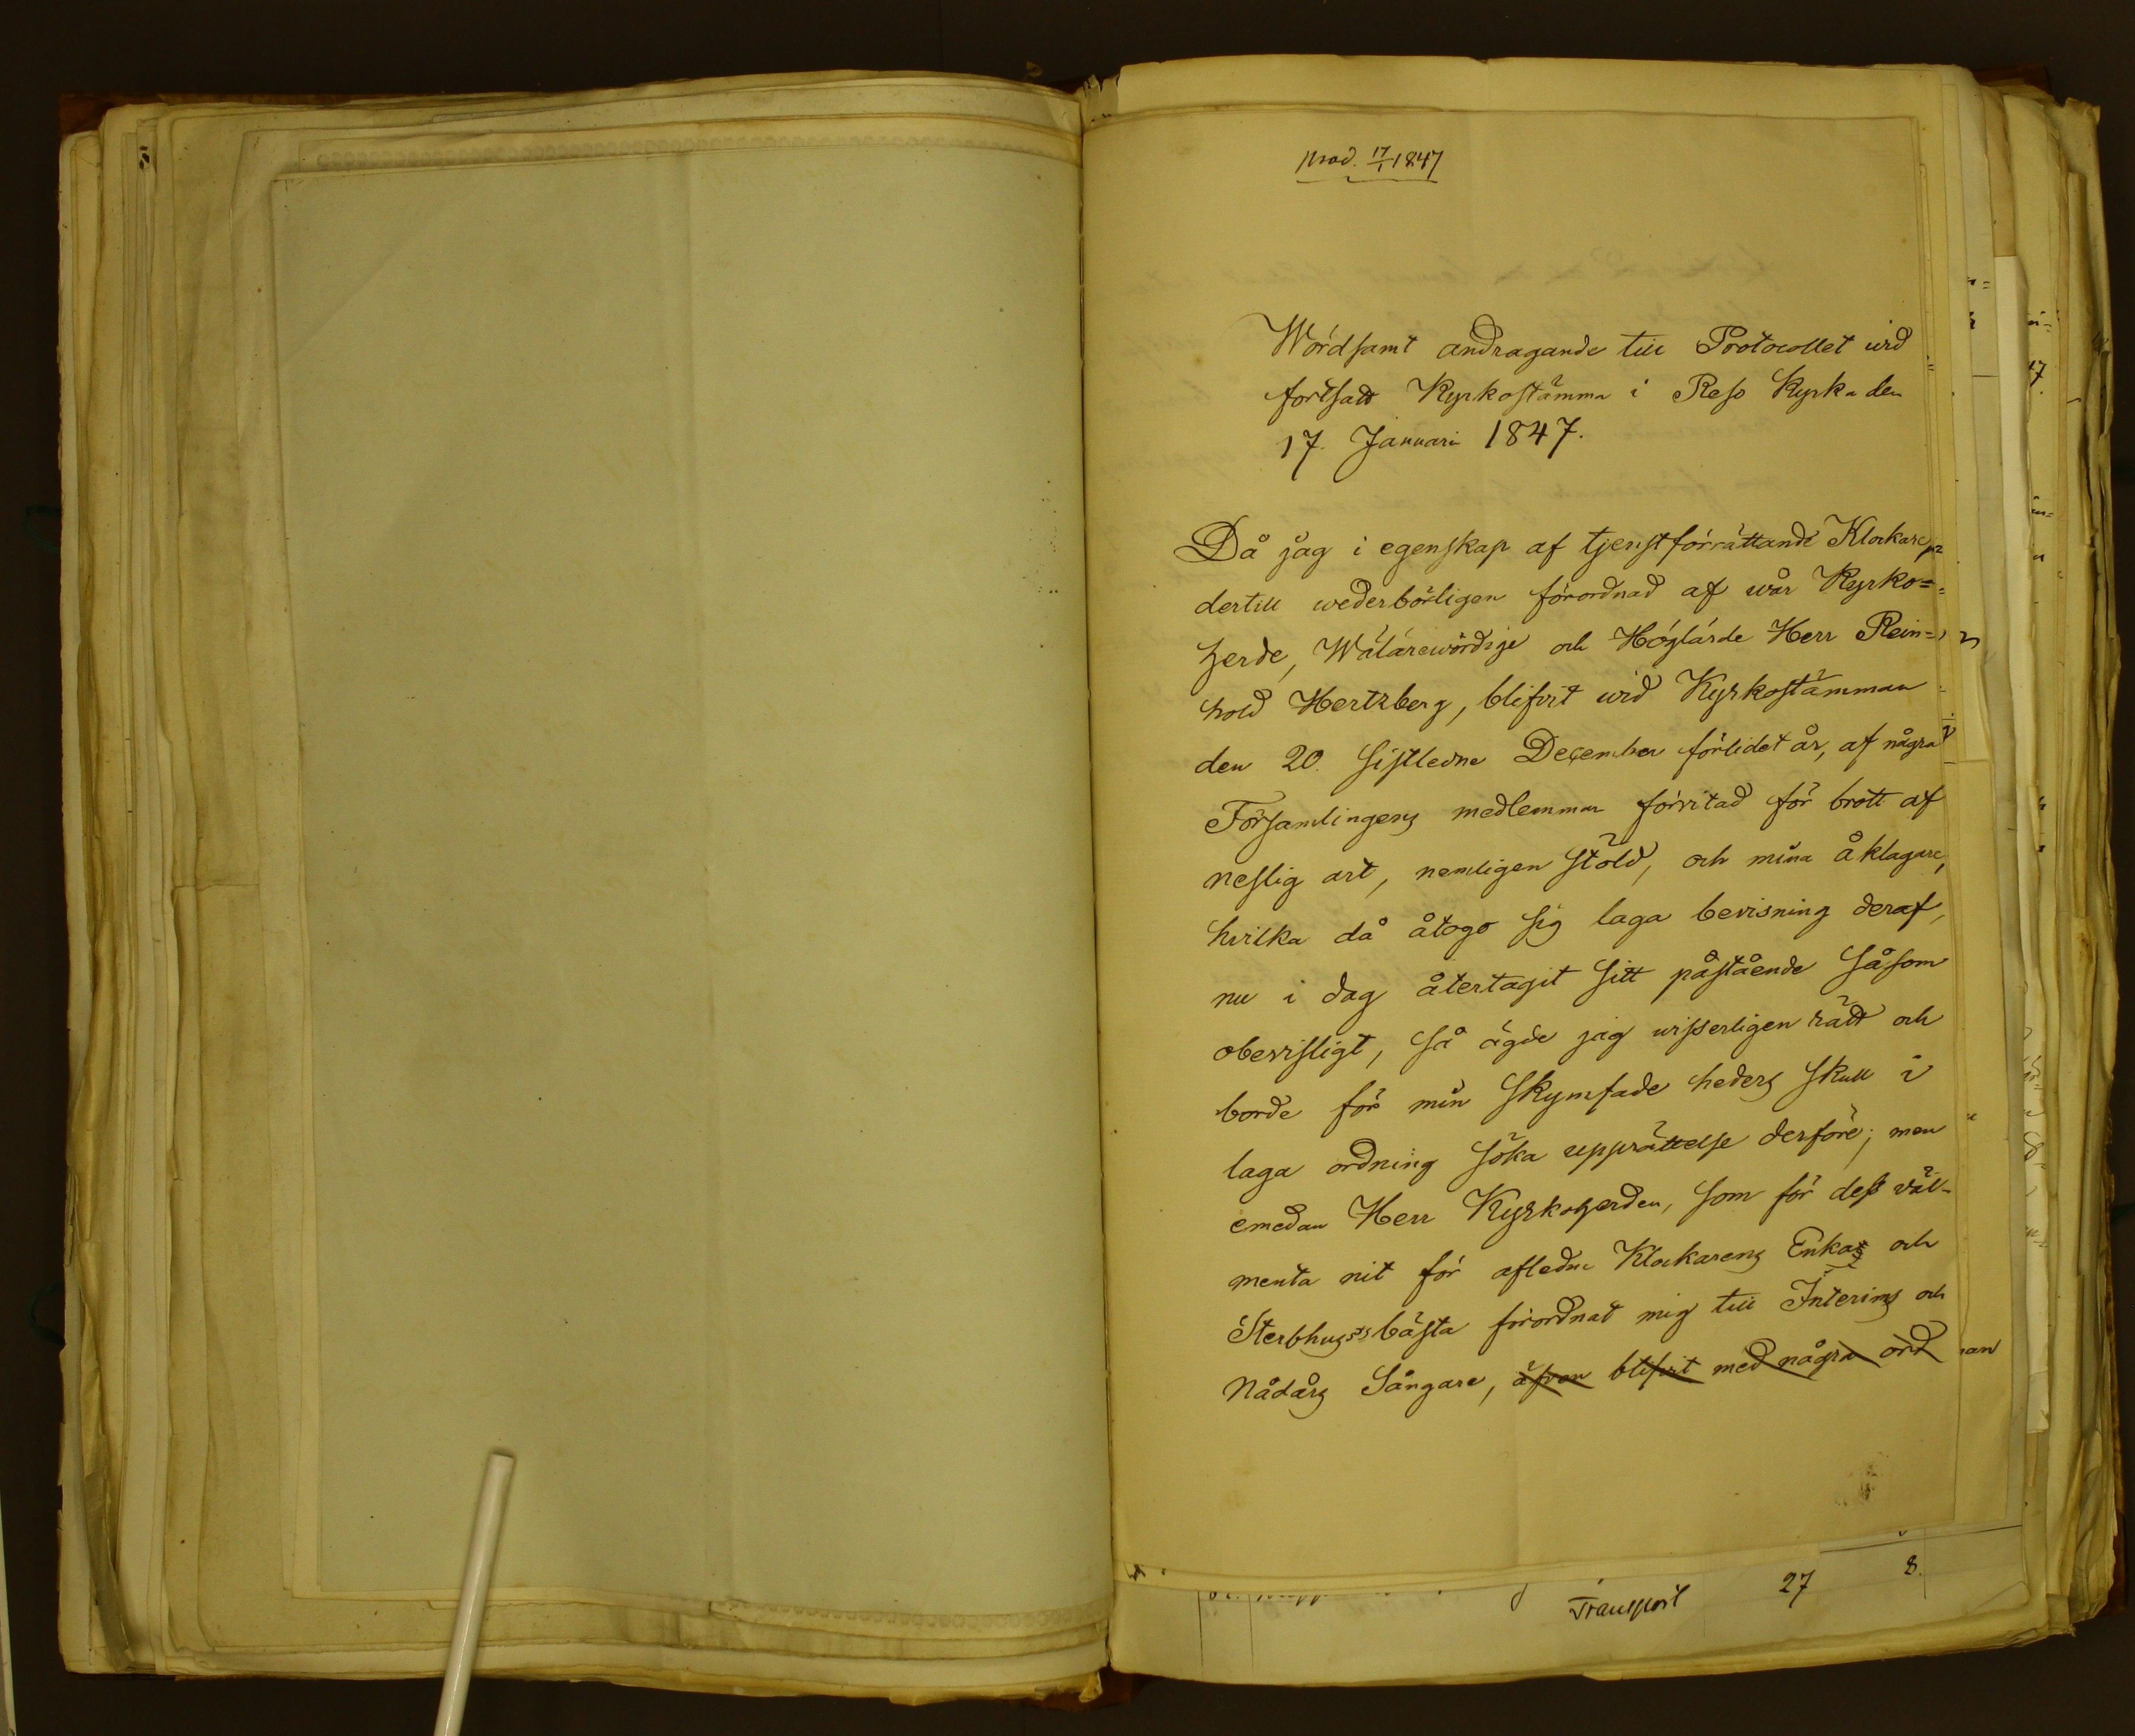 Prod. 17/1 1847
Wördsamt andragande till Protocollet wid
fortsatt Kyrkostämma i Reso Kyrka den
17. Januari 1847.
Då jag i egenskap af tjenstförrättande Klockare,
dertill wederbörligen förordnad af wår Kyrko=
herde, Wälärewördige och Höglärde Herr Rein=
hold Hertzberg, blifvit wid Kyrkostämman
den 20. sistledne December förlidet år, af några
Församlingens medlemmar förvitad för brott af
neslig art, nemligen stöld, och mina åklagare,
hvilka då åtogo sig laga bevisning deraf,
nu i dag återtagit sitt påstående såsom
obevisligt, så ägde jag wisserligen rätt och
borde för min skymfade heders skull i
laga ordning söka upprättelse derföre; men
emedan Herr Kyrkoherden, som för dess väl-
menta nit för afledne Klockarens Enkas och
Sterbhusets bästa förordnat mig till Interims och
Nådårs Sångare, äfven blifvit med några ord
Transport 27 8.